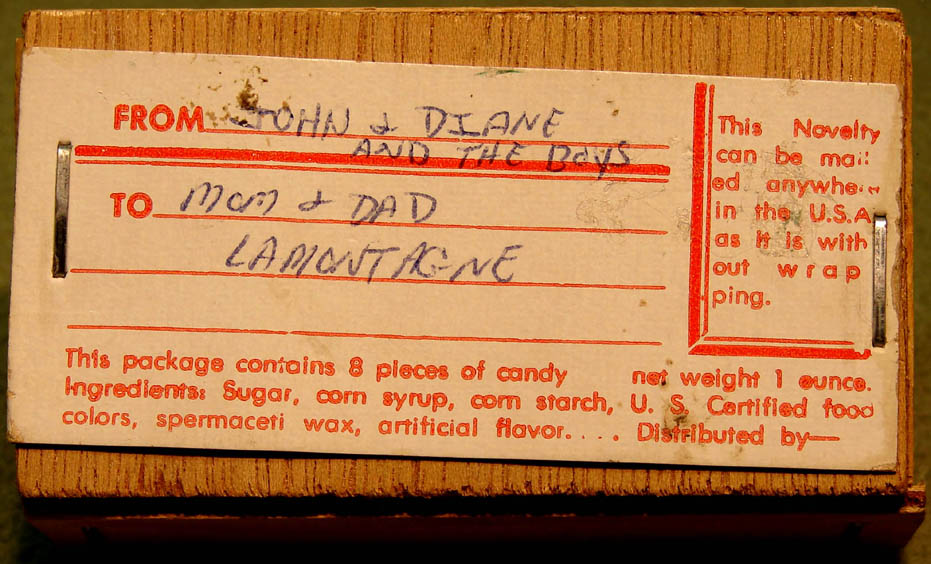 FROM JOHN & DIANE
AND THE BOYS
TO MOM & DAD
LAMONTAGNE
This Novelty
can be mail
ed anywhere
in the U.S.A
as it is with
out wrap
ping.
This package contains 8 pieces of candy net weight 1 ounce.
Ingredients: Sugar, corn syrup, corn starch, U. S. Certified food
colors, spermaceti wax, artificial flavor.... Distributed by—